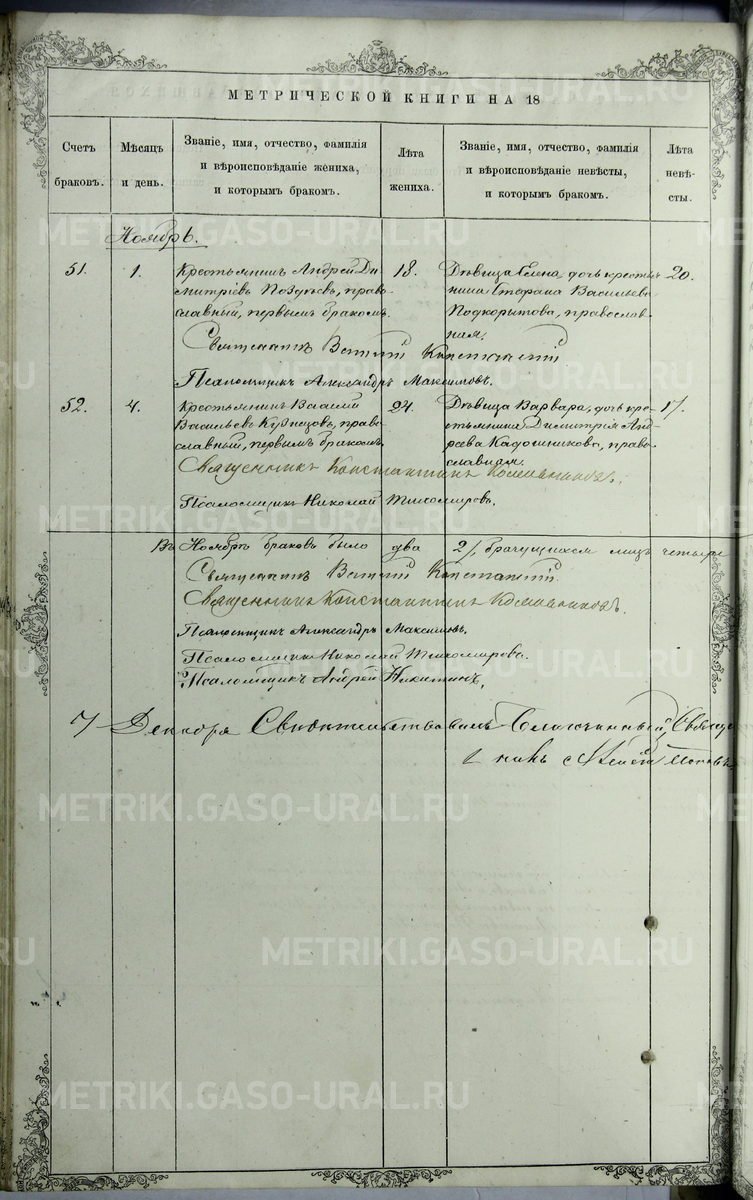 МЕТРИЧЕСКОЙ КНИГИ НА 18
Счетъ браковъ.
Мѣсяцъ и день.
Званіе, имя, отчество, фамилія и вѣроисповѣданіе жениха, и которымъ бракомъ.
Лѣта жениха.
Званіе, имя, отчество, фамилія и вѣроисповѣданіе невѣсты, и которымъ бракомъ.
Лѣта невѣсты.
Ноябрь.
51.
1.
Крестьянинъ Андрей Ди-
митріевъ Поздѣевъ, право-
славный, первымъ бракомъ.
18.
Дѣвица Елена, дочь крестья-
нина Стефана Васильева
Подкорытова, православ-
ная.
20.
Священникъ Константинъ
Псаломщикъ Александръ Максимовъ.
52.
4.
Крестьянинъ Василій
Васильевъ Кузнецовъ, право-
славный, первымъ бракомъ.
24.
Дѣвица Варвара, дочь кре-
стьянина Димитрія Анд-
реева Кадошникова, право-
славная.
17.
Священникъ Константинъ
Псаломщикъ Николай Тихомировъ.
Въ Ноябрѣ браковъ было два 2/ брачущихся лицъ четыре
Священникъ
Священникъ Константинъ
Псаломщикъ Александръ Максимовъ.
Псаломщикъ Николай Тихомировъ.
Псаломщикъ Андрей Никитинъ.
7 Декабря Свидѣтельствовалъ Благочинный, Священ-
никъ Поповъ
METRIKI.GASO-URAL.RU